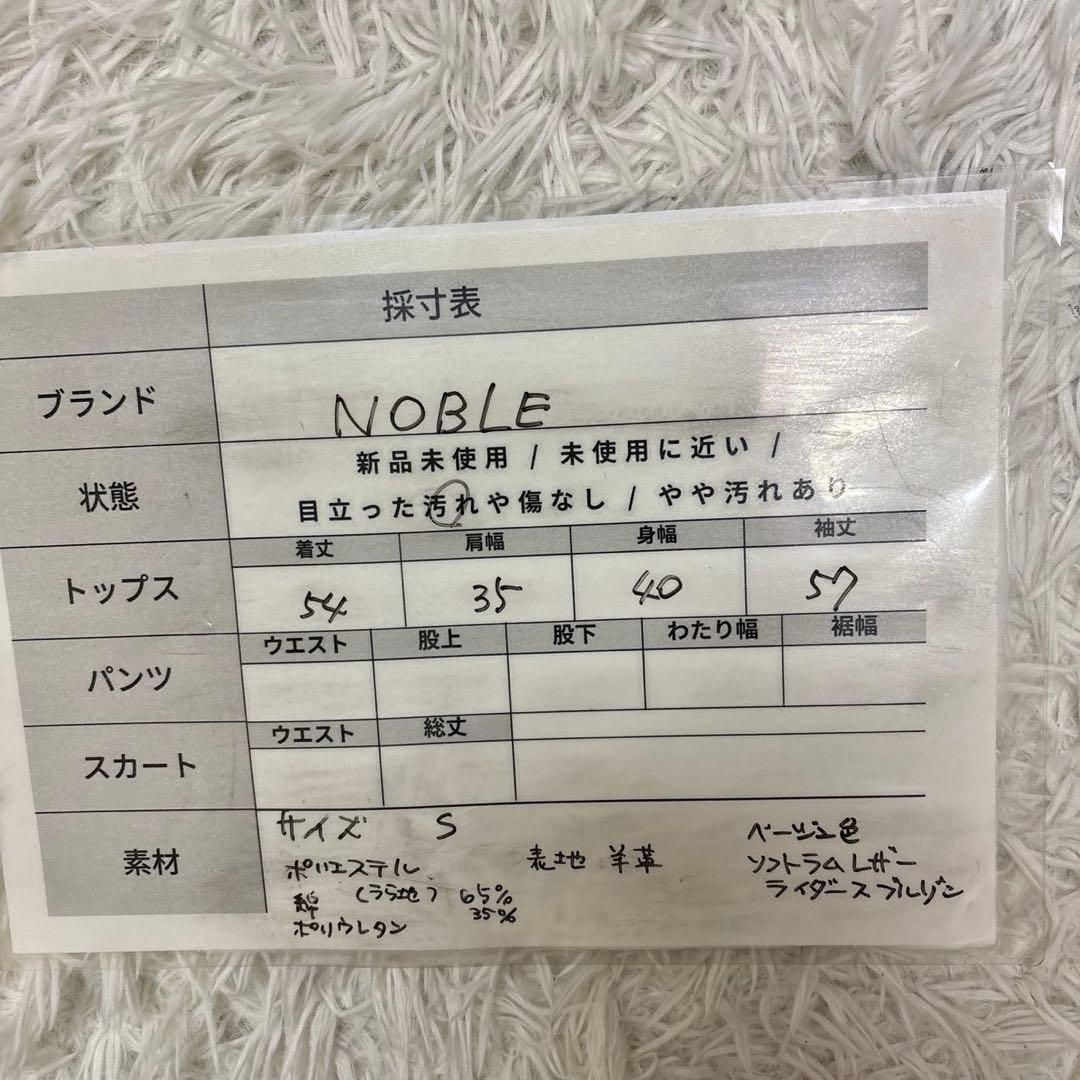 採寸表
ブランド NOBLE
状態 新品未使用 / 未使用に近い /
目立った汚れや傷なし / やや汚れあり
トップス 着丈 肩幅 身幅 袖丈
54 35 40 57
パンツ ウエスト 股上 股下 わたり幅 裾幅
スカート ウエスト 総丈
素材 サイズ S
ポリエステル 表地 羊革 ベージュ色
綿 (うら地) 65% ソフトラムレザー
35% ライダースブルゾン
ポリウレタン